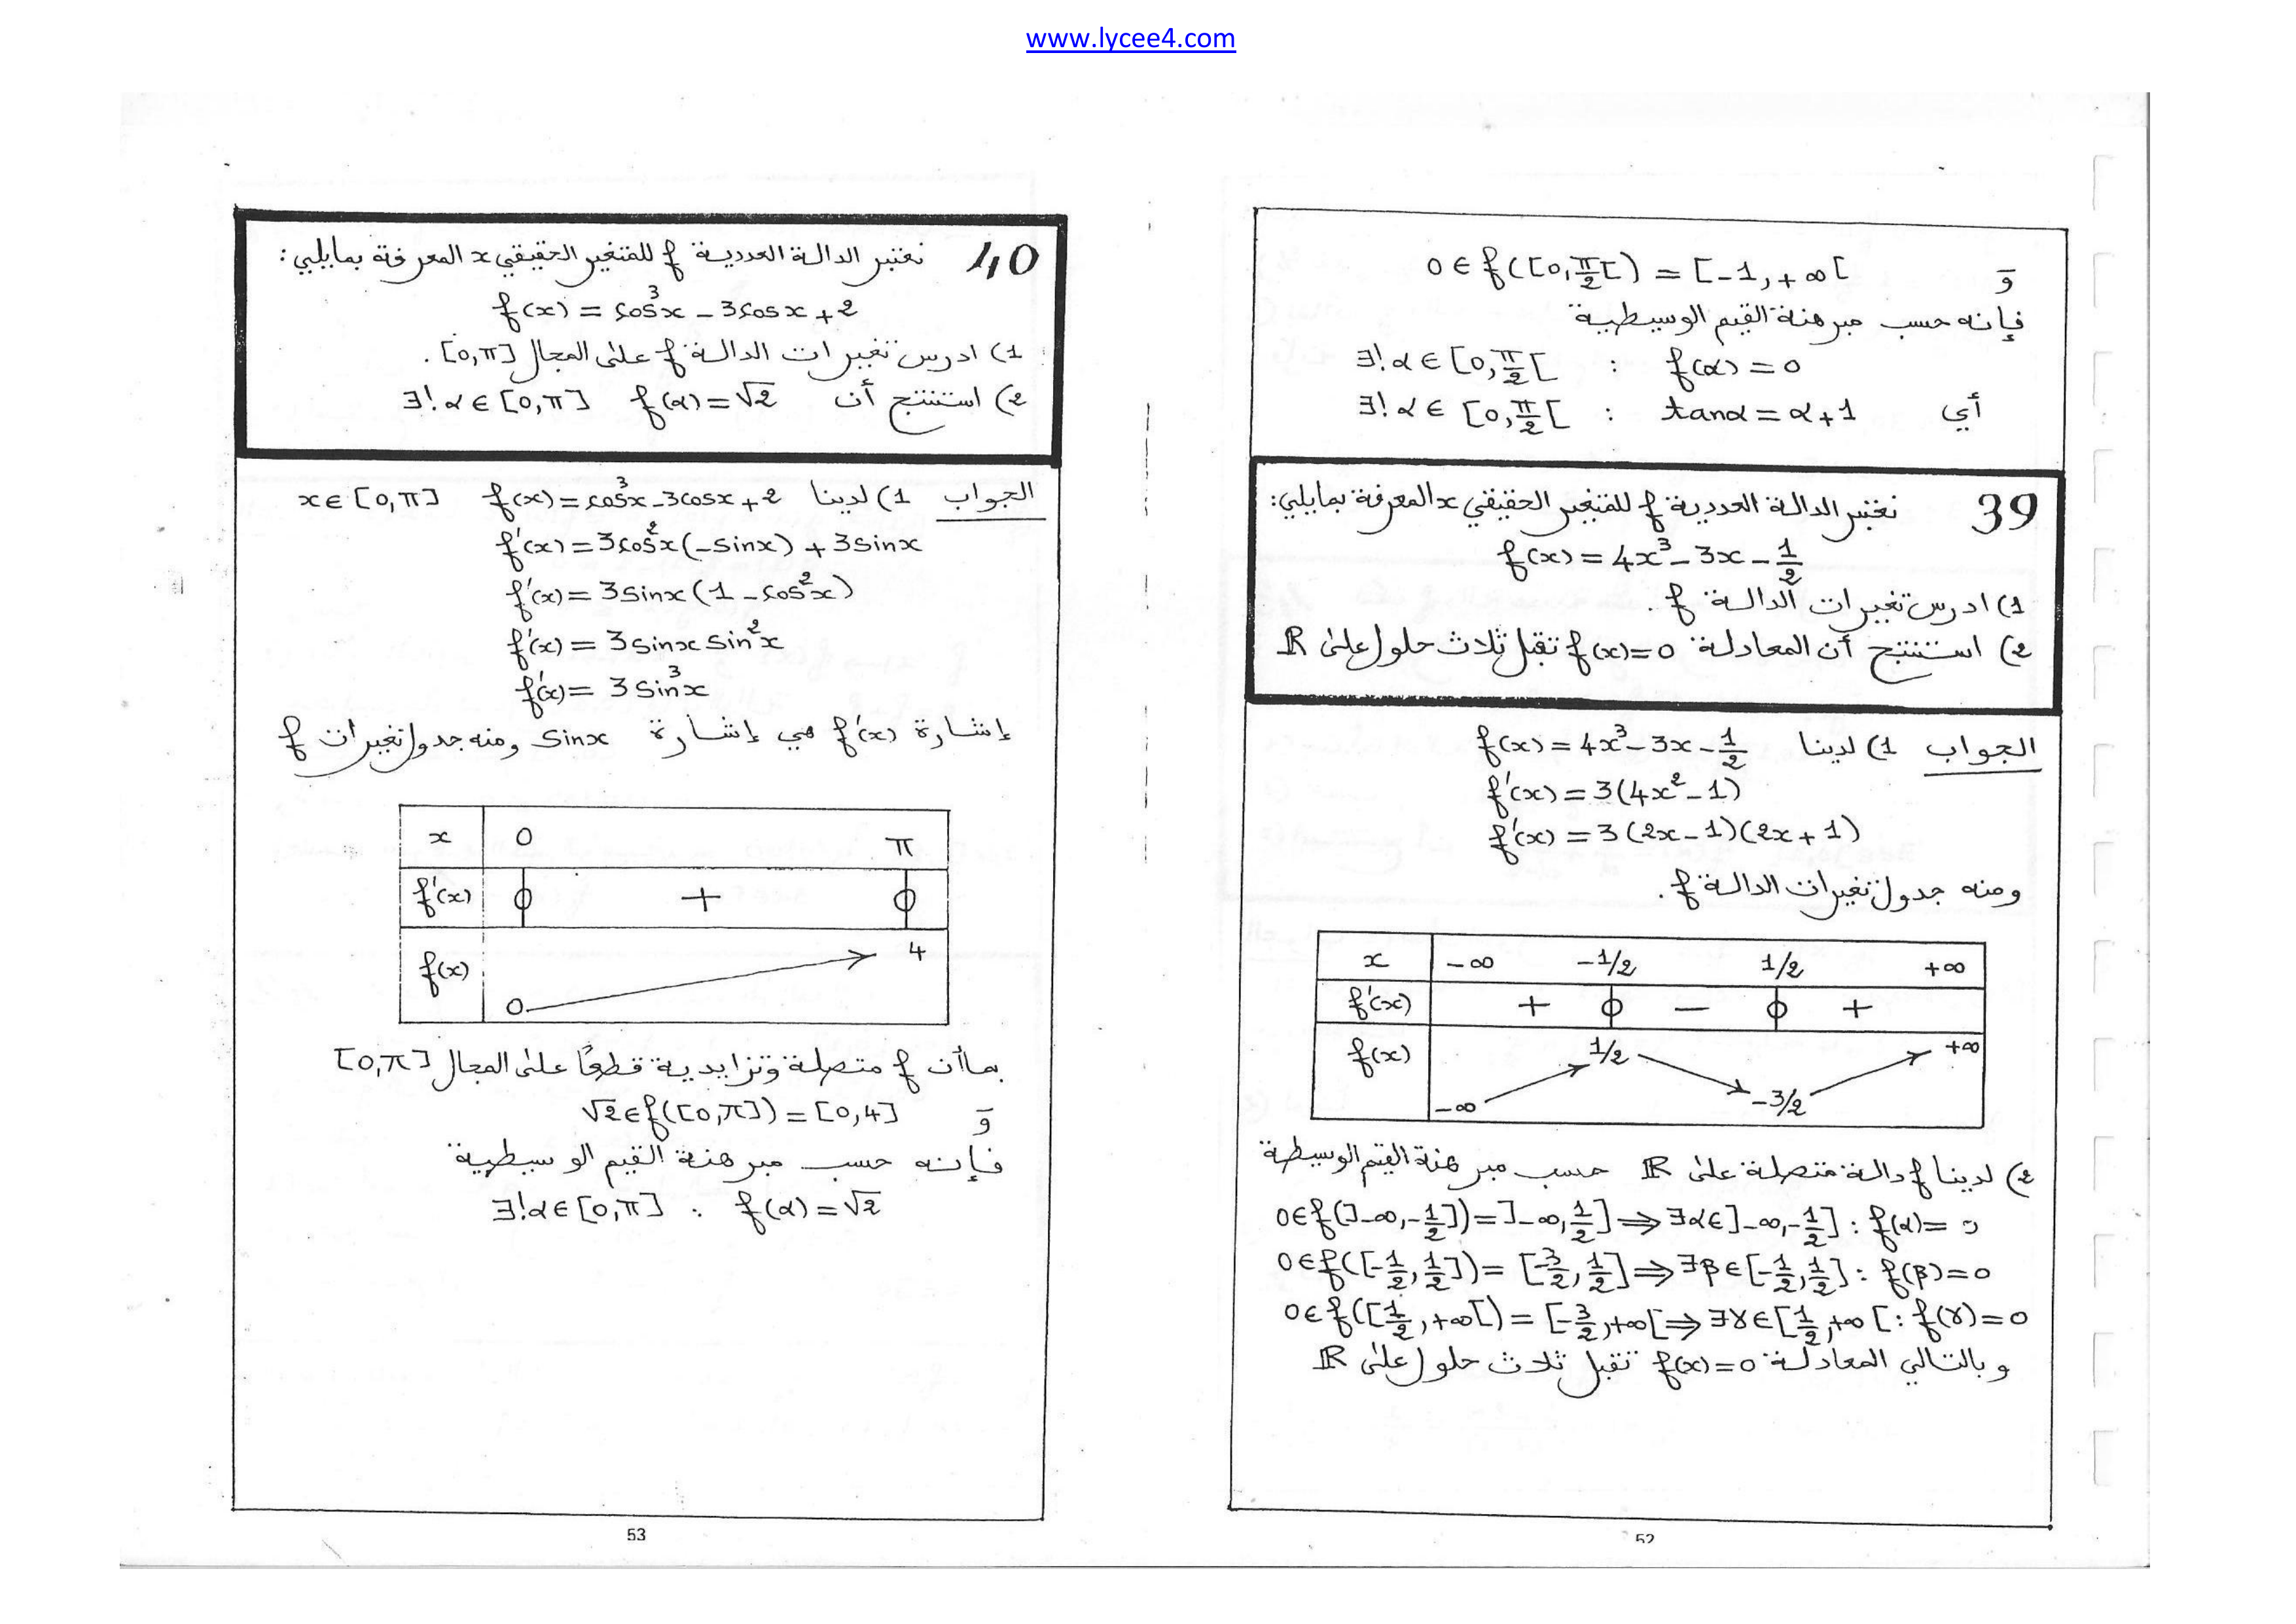 www.lycee4.com
و َ 0 ∈ f([0, π/2[) = [-1, +∞[
فإنه حسب مبرهنة القيم الوسيطية
∃! α ∈ [0, π/2[ : f(α) = 0
أي ∃! α ∈ [0, π/2[ : tanα = α + 1
39 نعتبر الدالة العددية f للمتغير الحقيقي x المعرفة بمايلي:
f(x) = 4x³ - 3x - 1/2
1) ادرس تغيرات الدالة f.
2) استنتج أن المعادلة f(x)=0 تقبل ثلاث حلول على ℝ
الجواب 1) لدينا f(x) = 4x³ - 3x - 1/2
f'(x) = 3(4x² - 1)
f'(x) = 3(2x - 1)(2x + 1)
ومنه جدول تغيرات الدالة f.
x -∞ -1/2 1/2 +∞
f'(x) + 0 - 0 +
f(x) -∞ 1/2 -3/2 +∞
2) لدينا f دالة متصلة على ℝ حسب مبرهنة القيم الوسيطة
0 ∈ f(]-∞, -1/2]) = ]-∞, 1/2] ⇒ ∃α ∈ ]-∞, -1/2] : f(α) = 0
0 ∈ f([-1/2, 1/2]) = [-3/2, 1/2] ⇒ ∃β ∈ [-1/2, 1/2] : f(β) = 0
0 ∈ f([1/2, +∞[) = [-3/2, +∞[ ⇒ ∃γ ∈ [1/2, +∞[ : f(γ) = 0
وبالتالي المعادلة f(x)=0 تقبل ثلاث حلول على ℝ
52
40 نعتبر الدالة العددية f للمتغير الحقيقي x المعرفة بمايلي:
f(x) = cos³x - 3cosx + 2
1) ادرس تغيرات الدالة f على المجال [0,π].
2) استنتج أن ∃! α ∈ [0,π] f(α) = √2
الجواب 1) لدينا f(x) = cos³x - 3cosx + 2 x ∈ [0,π]
f'(x) = 3cos²x(-sinx) + 3sinx
f'(x) = 3sinx(1 - cos²x)
f'(x) = 3sinx sin²x
f'(x) = 3sin³x
إشارة f'(x) هي إشارة sinx ومنه جدول تغيرات f
x 0 π
f'(x) 0 + 0
f(x) 0 4
بما أن f متصلة وتزايدية قطعًا على المجال [0,π]
و َ √2 ∈ f([0,π]) = [0,4]
فإنه حسب مبرهنة القيم الوسيطية
∃! α ∈ [0,π] : f(α) = √2
53